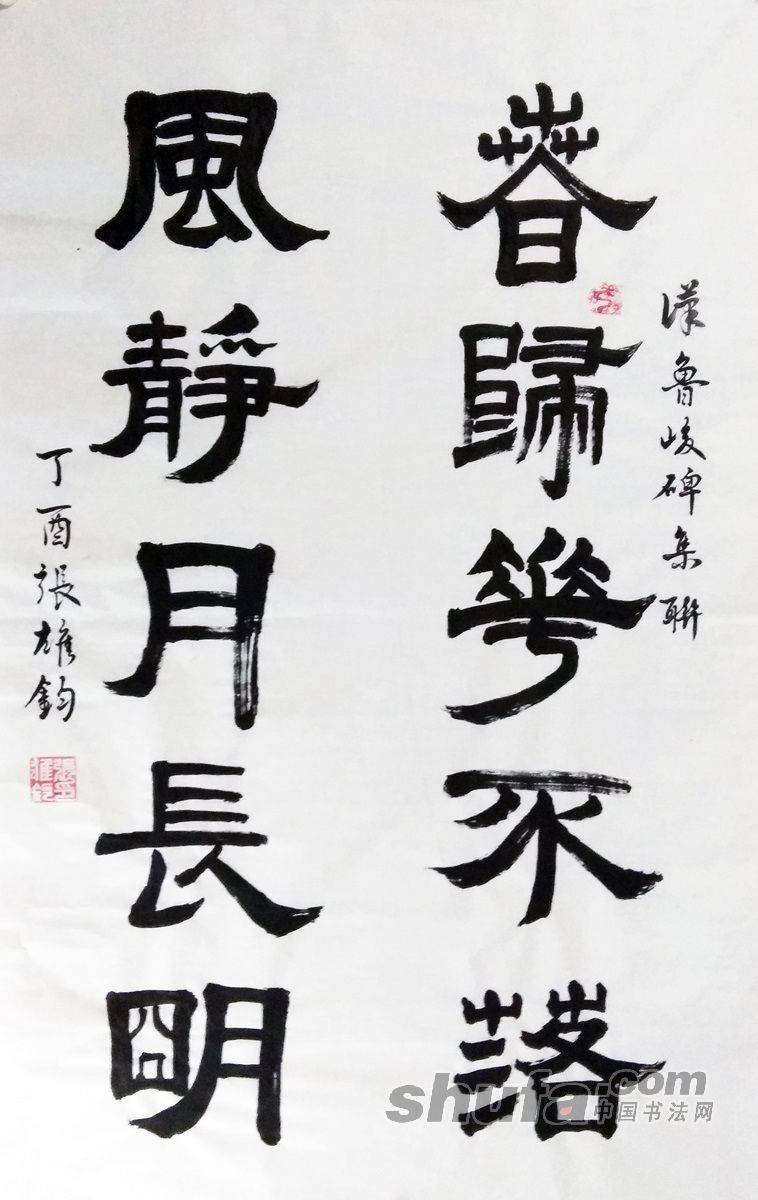 漢魯峻碑集聯
春歸華不落
風靜月長明
丁酉張雄鈞
shufa.com
中国书法网